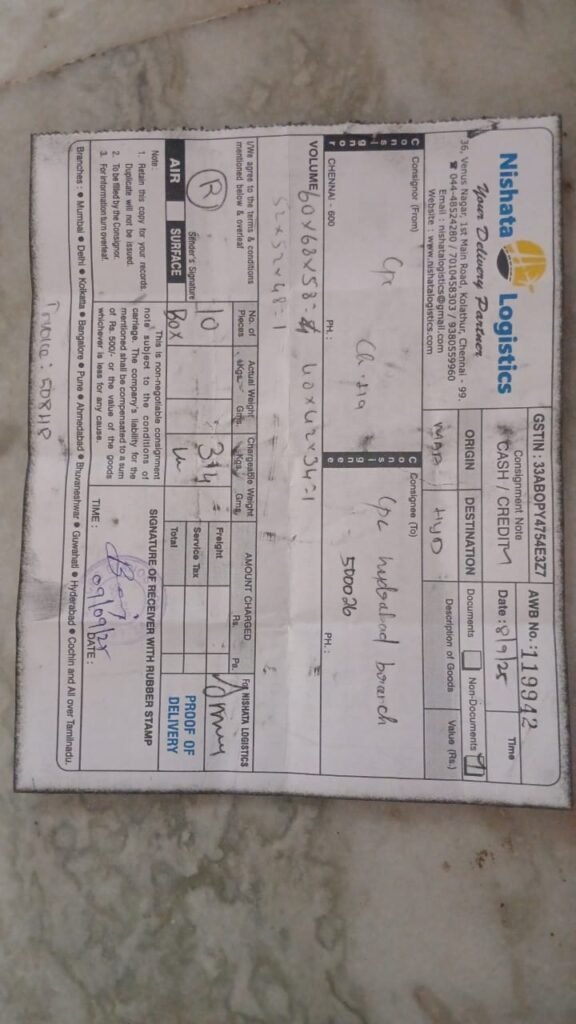 Nishata Logistics
Your Delivery Partner
36, Venus Nagar, 1st Main Road, Kolathur, Chennai - 99.
☎ 044-48524280 / 7010458303 / 9380559960
Email : nishatalogistics@gmail.com
Website : www.nishatalogistics.com
GSTIN : 33ABOPY4754E3Z7
AWB No.: 119942
Consignment Note
CASH / CREDIT
Date : 8/9/25
Time
ORIGIN
DESTINATION
HYD
Documents
Non-Documents
Description of Goods
Value (Rs.)
Consignor
Consignor (From)
Cpc
CHENNAI - 600
PH :
Consignee
Consignee (To)
Cpc hyderabad branch
500026
PH. :
VOLUME 60x60x58=
40x42x34=1
52x52x48=1
I/We agree to the terms & conditions
mentioned below & overleaf
R
Sender's Signature
AIR
SURFACE
No. of Pieces
10
Box
Actual Weight
Kgs. Gms.
Chargeable Weight
Kgs. Gms.
314
AMOUNT CHARGED
Rs. Ps.
Freight
Service Tax
Total
For NISHATA LOGISTICS
PROOF OF
DELIVERY
Note :
1. Retain this copy for your records.
Duplicate will not be issued.
2. To be filled by the Consignor.
3. For information turn overleaf.
This is non-negotiable consignment
note subject to the conditions of
carriage. The company's liability for the
mentioned shall be compensated to a sum
of Rs. 500/- or the value of the goods
whichever is less for any cause.
SIGNATURE OF RECEIVER WITH RUBBER STAMP
TIME :
DATE :
09/09/25
Branches : ● Mumbai ● Delhi ● Kolkatta ● Bangalore ● Pune ● Ahmedabad ● Bhuvaneshwar ● Guwahati ● Hyderabad ● Cochin and All over Tamilnadu.